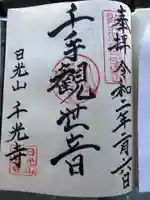 奉拝 令和二年二月六日
千手觀世音
日光山 千光寺